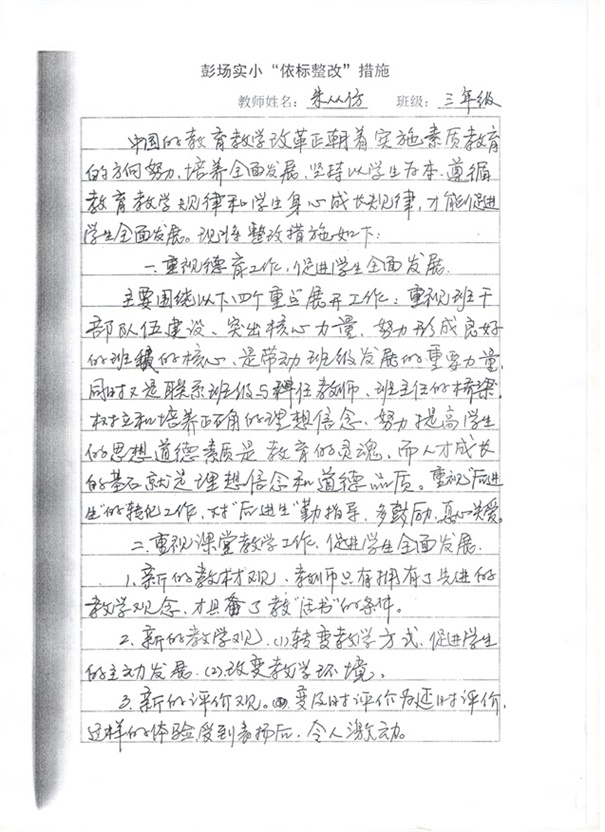 彭场实小“依标整改”措施
教师姓名：朱从仿 班级：三年级
中国的教育教学改革正朝着实施素质教育
的方向努力，培养全面发展，坚持以学生为本，遵循
教育教学规律和学生身心成长规律，才能促进
学生全面发展。现将整改措施如下：
一、重视德育工作，促进学生全面发展。
主要围绕以下四个重点展开工作：重视班干
部队伍建设、突出核心力量，努力形成良好
的班级的核心，是带动班级发展的重要力量，
同时又是联系班级与科任教师、班主任的桥梁，
树立和培养正确的理想信念，努力提高学生
的思想道德素质是教育的灵魂，而人才成长
的基石就是理想信念和道德品质。重视“后进
生”的转化工作，对“后进生”勤指导，多鼓励，真心关爱。
二、重视课堂教学工作，促进学生全面发展。
1、新的教材观，教师只有拥有了先进的
教学观念，才具备了教“活书”的条件。
2、新的教学观，(1)转变教学方式，促进学生
的主动发展，(2)改变教学环境。
3、新的评价观。变及时评价为延时评价，
这样的体验受到表扬后，令人激动。